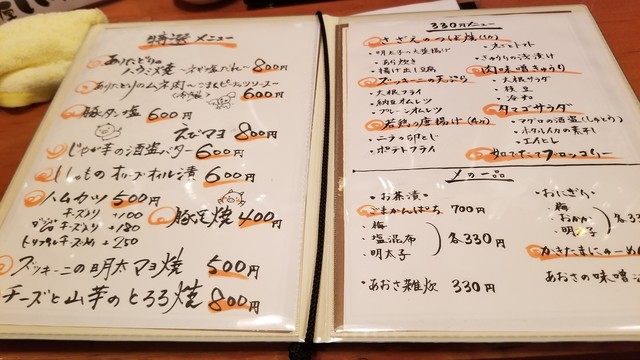 特選 メニュー
ありたどりの
ハラミ焼 〜ネギ塩だれ〜 800円
ありたどりのムネ肉〜ごまとピーナッツソース〜
600円
豚タン塩 600円
えびマヨ 800円
じゃが芋の酒盗バター 600円
いちもつ オリーブオイル漬 600円
ハムカツ 500円
チーズ入り +100
ダブルチーズ入り +180
トリプルチーズ入り +250
豚足焼 400円
ズッキーニの明太マヨ焼 500円
チーズと山芋のとろろ焼 800円
330円メニュー
さざえのつぼ焼(1ケ)
・明太子の大葉揚げ
・あら炊き
・揚げ出し豆腐
ズッキーニの天ぷら
・大根フライ
・納豆オムレツ
・プレーンオムレツ
若鶏の唐揚げ(4ケ)
・ニラの卵とじ
・ポテトフライ
・冷トマト
・きゅうりの浅漬け
肉味噌きゅうり
・大根サラダ
・枝豆
・冷奴
タマゴサラダ
・マグロの酒盗(しゅとう)
・ホタルイカの素干し
・エイヒレ
茹でたてブロッコリー
〆の一品
・お茶漬・
ごまかんぱち 700円
・梅
・塩昆布
・明太子
各330円
・あおさ雑炊 330円
・おにぎり・
・梅
・おかか
・明太子
各33
かきたまにゅーめん
あおさの味噌